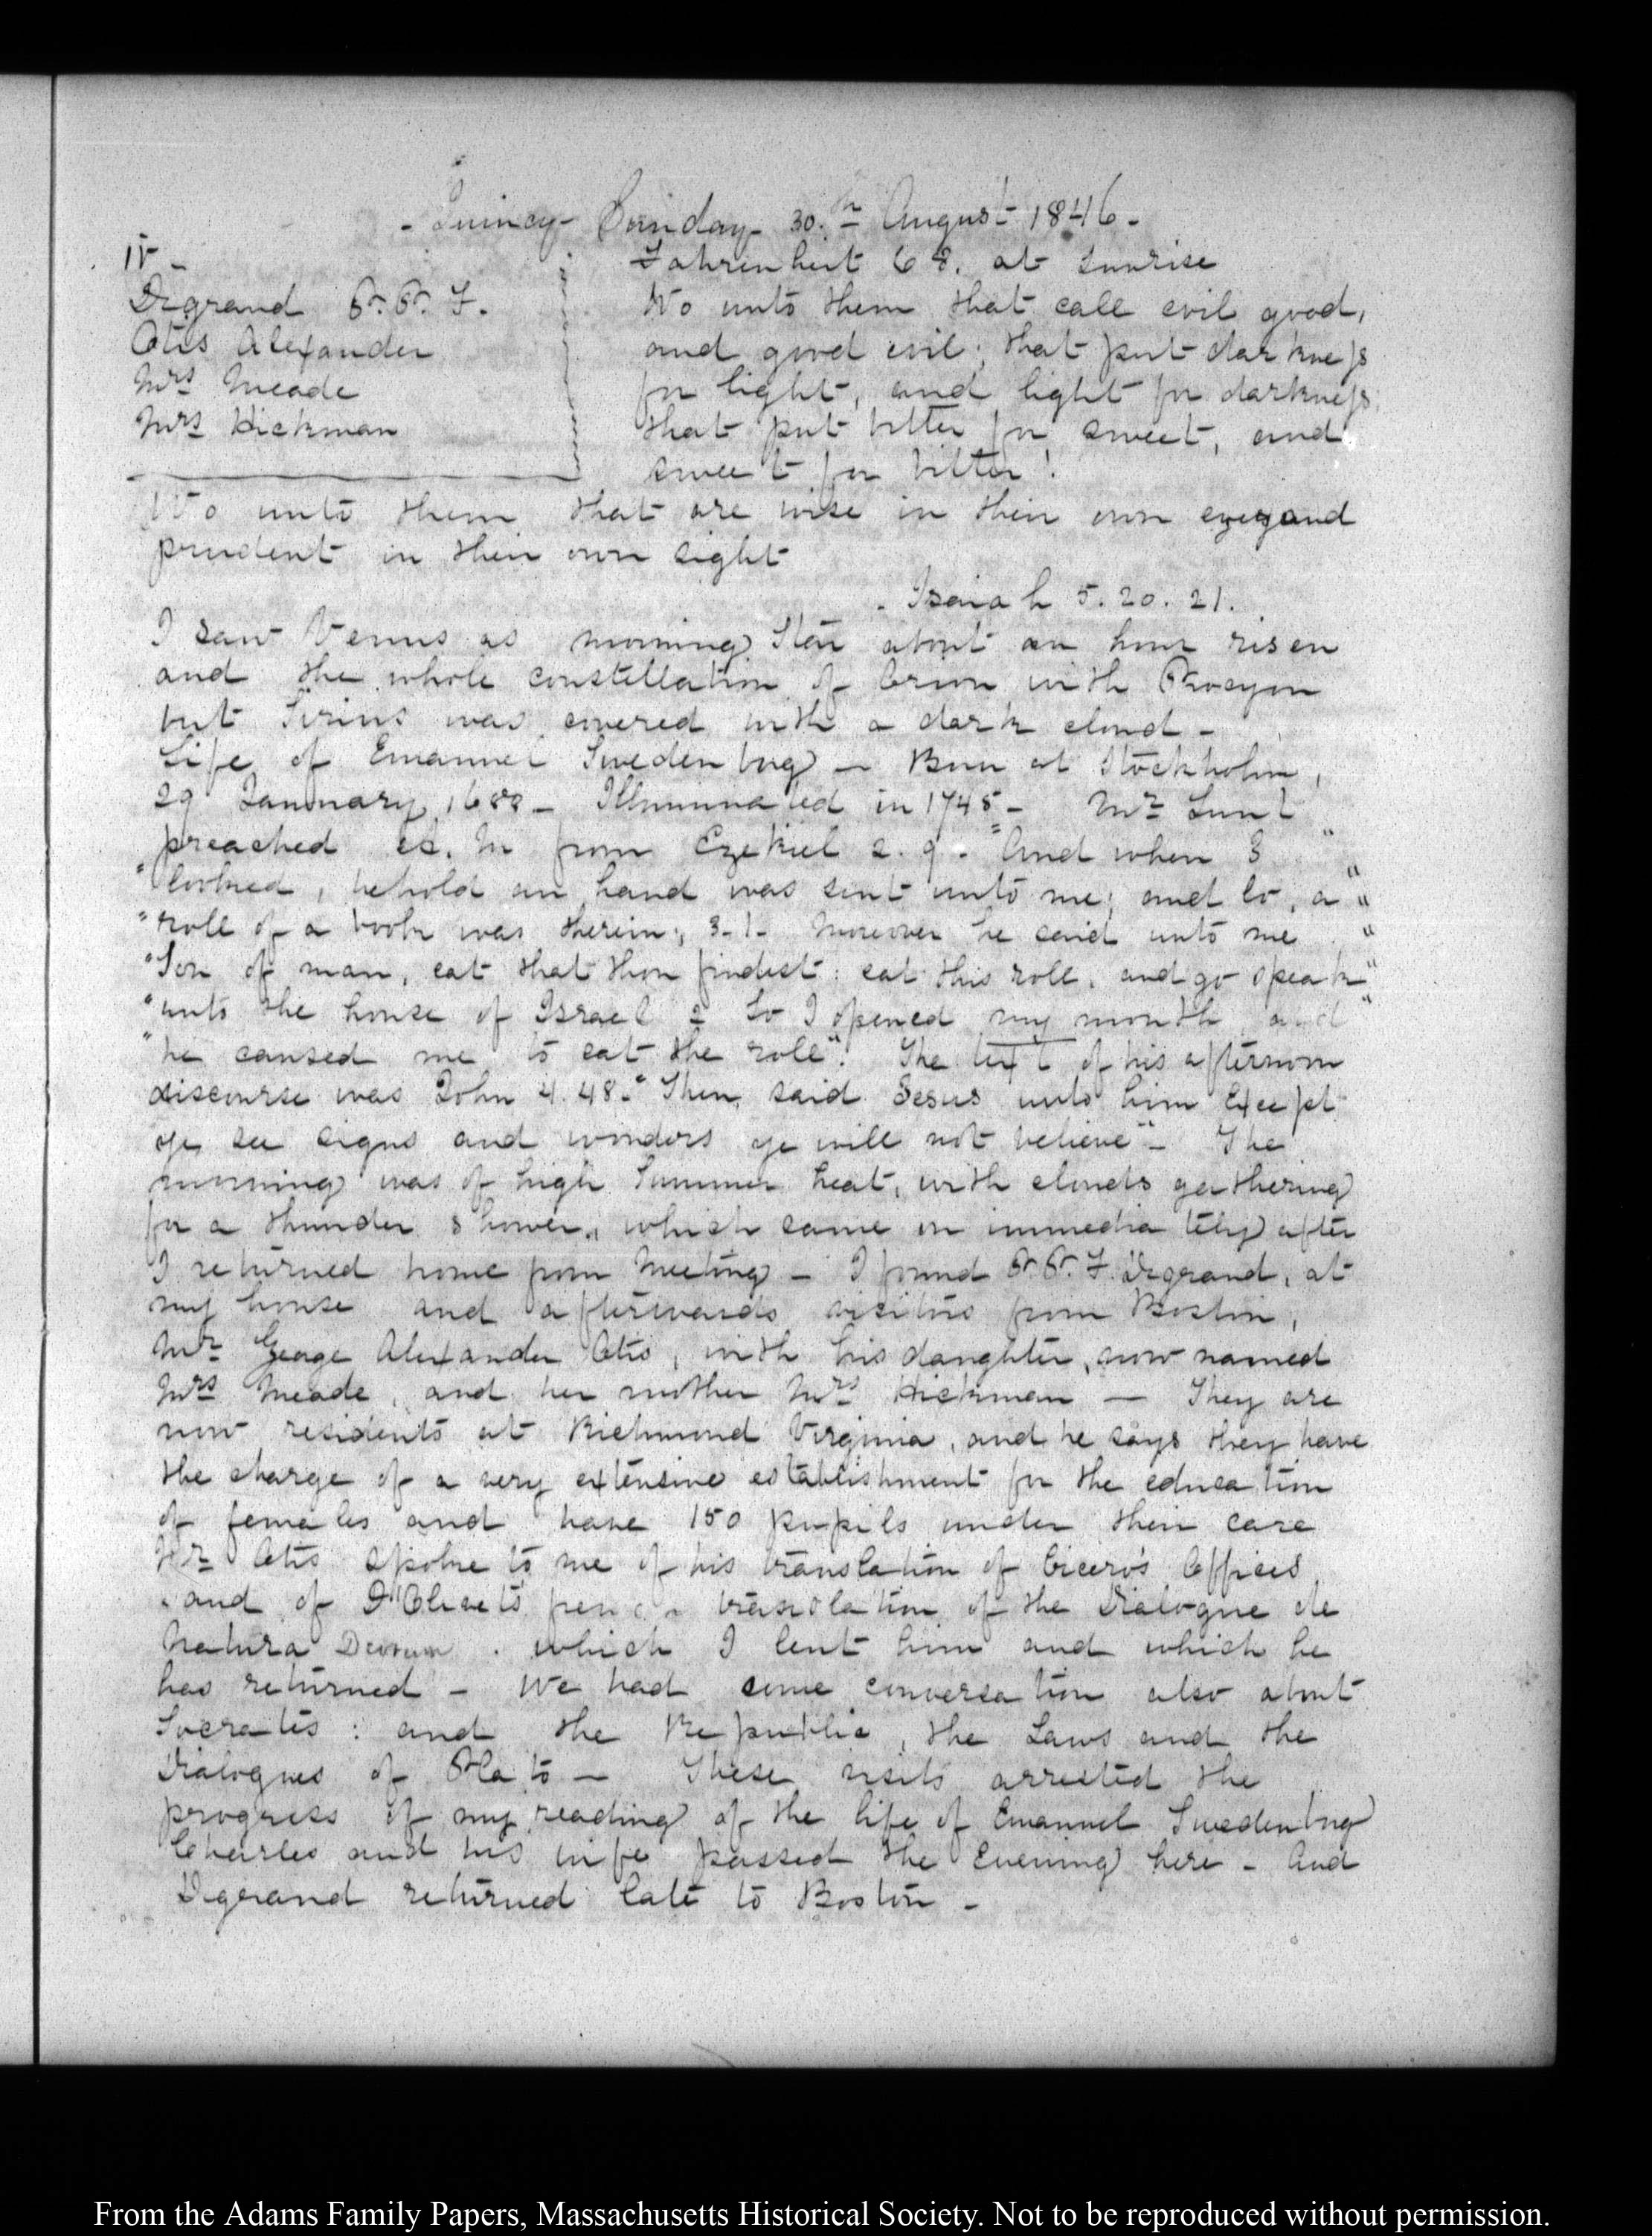 - Quincy - Sunday - 30.th August 1846 -
IV -
Degrand P. P. F.
Otis Alexander
Mrs Meade
Mrs Hickman
Fahrenheit 68. at sunrise
Wo unto them that call evil good,
and good evil; that put darkness
for light, and light for darkness;
that put bitter for sweet, and
sweet for bitter!
Wo unto them that are wise in their own eyes and
prudent in their own sight
- Isaiah 5. 20. 21.
I saw Venus as morning Star about an hour risen
and the whole constellation of Orion with Procyon
but Sirius was covered with a dark cloud -
Life of Emanuel Swedenborg - Born at Stockholm,
29 January, 1688 - Illuminated in 1745 - Mr Lunt
preached from Ezekiel 2. 9. "And when I "
"looked, behold an hand was sent unto me; and lo, a "
"roll of a book was therein; 3-1- Moreover he said unto me "
"Son of man, eat that thou findest: eat this roll, and go speak"
"unto the house of Israel 2 So I opened my mouth and"
"he caused me to eat the role". The text of his afternoon
discourse was John 4. 48. "Then said Jesus unto him Except
ye see signs and wonders ye will not believe" - The
morning was of high Summer heat, with clouds gathering
for a thunder shower, which came on immediately after
I returned home from Meeting - I found P. P. F. Degrand, at
my house and afterwards visitors from Boston,
Mr George Alexander Otis, with his daughter, now named
Mrs Meade, and her mother Mrs Hickman — They are
now residents at Richmond Virginia, and he says they have
the charge of a very extensive establishment for the education
of females and have 150 pupils under their care
Mr Otis spoke to me of his translation of Cicero's Offices
and of D'Olivet's translation of the Dialogue de
Natura Deorum. which I lent him and which he
has returned - We had some conversation also about
Socrates: and the Republic, the Laws and the
Dialogues of Plato - These visits arrested the
progress of my reading of the life of Emanuel Swedenborg
Charles and his wife passed the Evening here - And
Degrand returned late to Boston -
From the Adams Family Papers, Massachusetts Historical Society. Not to be reproduced without permission.